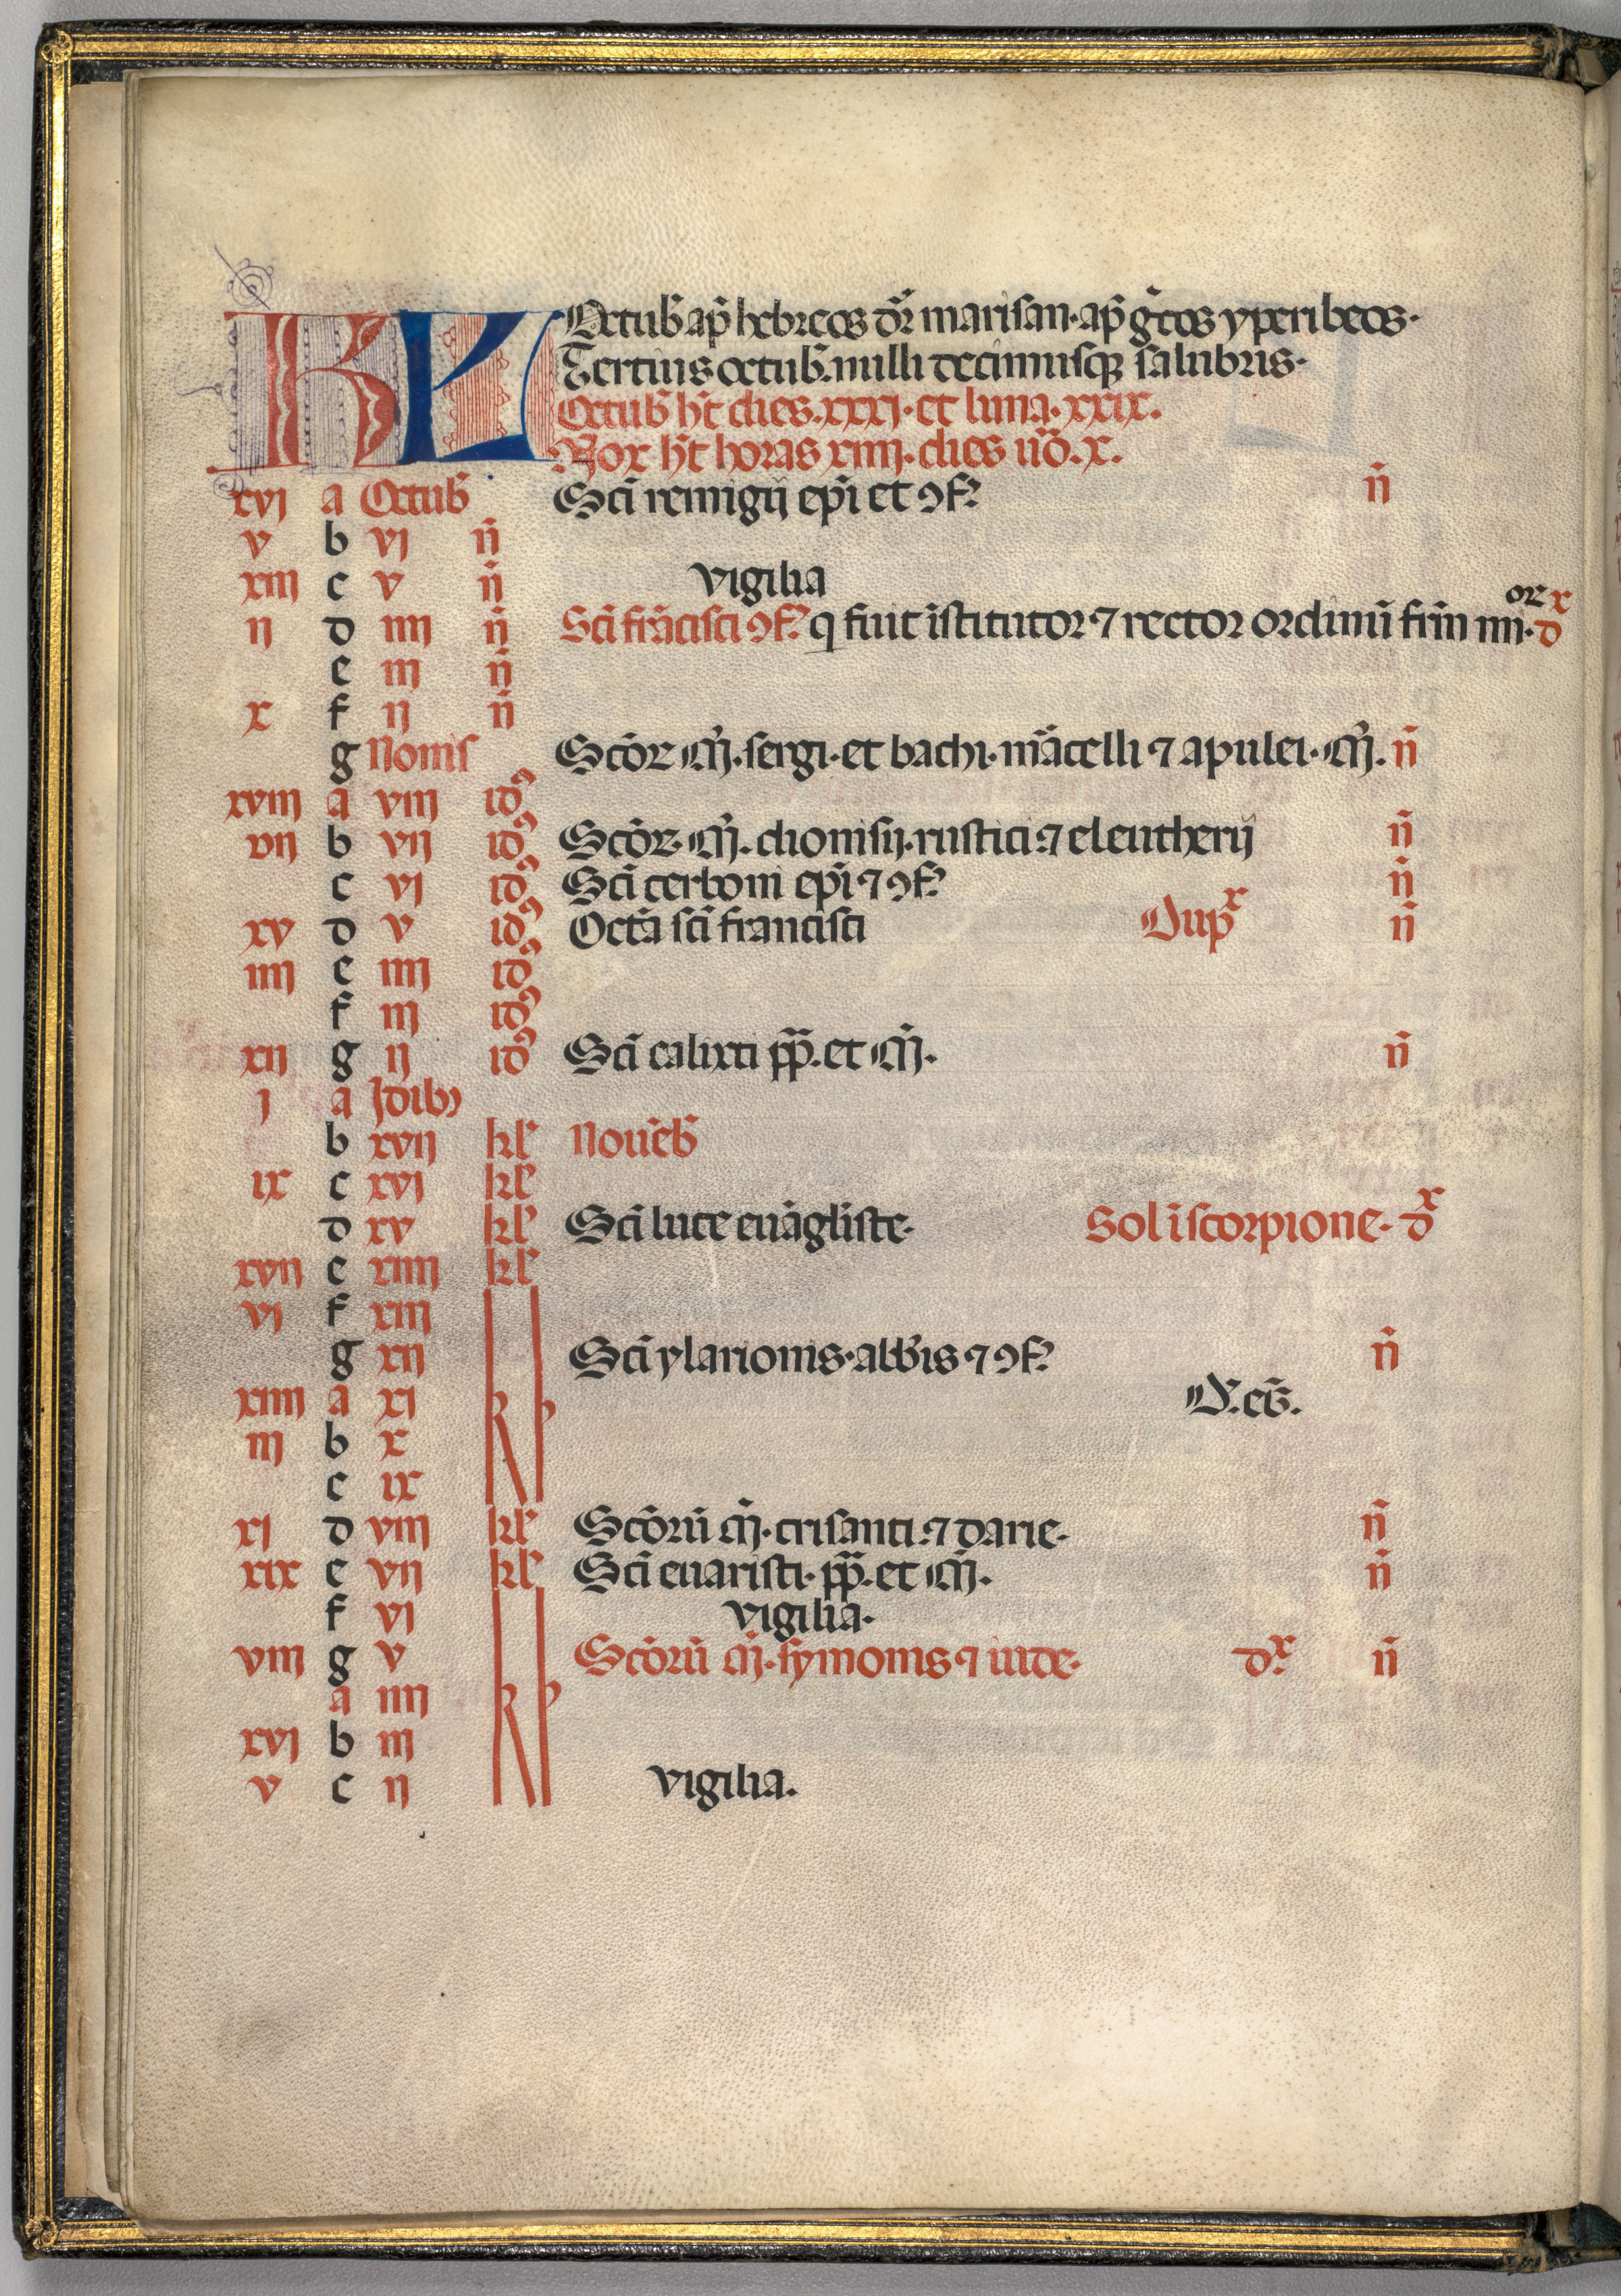 KL Octub̄ ap̄ hebreos dr̄ marisan·ap̄ gͨcos yperibeos·
Tertius octub̄.nulli decimusq̨ salubris·
Octub̄ h̄t dies.xxxj·et luna·xxix.
Nox h̄t horas xiiij·dies u̅o·x.
xvj a Octub̄ Sc̄i remigij ep̄i et ꝯf? n̄
v b vj n̄
xiij c v n̄ vigilia
ij d iiij n̄ Sc̄i frācisci ꝯf? q̄ fuit īstitutor ⁊ rector ordinū fr̄m mi.or dx
e iij n̄
x f ij n̄
g Nonis Sc̄oꝝ M̄.sergi·et bachi·m̄acelli ⁊ apulei·M̄. n̄
xviij a viij idꝰ
vij b vij idꝰ Sc̄oꝝ·M̄.dionisij.rustici·⁊ eleutherij n̄
c vj idꝰ Sc̄i cerboni ep̄i ⁊ ꝯf? n̄
xv d v idꝰ Octā sc̄i francisci Dupx n̄
iiij e iiij idꝰ
f iij idꝰ
xij g ij idꝰ Sc̄i calixti pp̄.et M̄. n̄
j a Jdibꝰ
b xvij kl' Nouēb̄
ix c xvj kl'
d xv kl' Sc̄i luce euāgliste· Sol ī scorpione· dx
xvij e xiiij kl'
vj f xiij
g xij Sc̄i ylarionis·abb̄is ⁊ ꝯf? n̄
xiiij a xj kl' D̄.eḡ.
iij b x
c ix
xj d viij kl' Sc̄orū M̄·crisanti·⁊ darie· n̄
xix e vij kl' Sc̄i euaristi·pp̄.et M̄. n̄
f vj vigilia·
viij g v Sc̄orū M̄·symonis ⁊ iude· dx n̄
a iiij kl'
xvj b iij
v c ij vigilia.